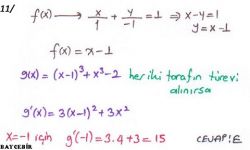 11/
f(x) ⟶ x/1 + y/-1 = 1 ⇒ x-y=1
y = x-1
f(x) = x-1
g(x) = (x-1)³ + x³ - 2 her iki tarafın türevi
alınırsa
g'(x) = 3(x-1)² + 3x²
x=-1 için g'(-1) = 3.4 + 3 = 15 CEVAP: E
BAYCEBİR